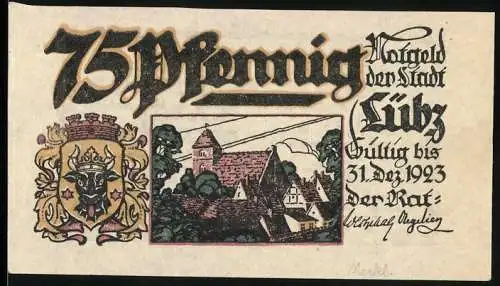 75 Pfennig
Notgeld
der Stadt
Lübz
Gültig bis
31. Dez. 1923
der Rat=